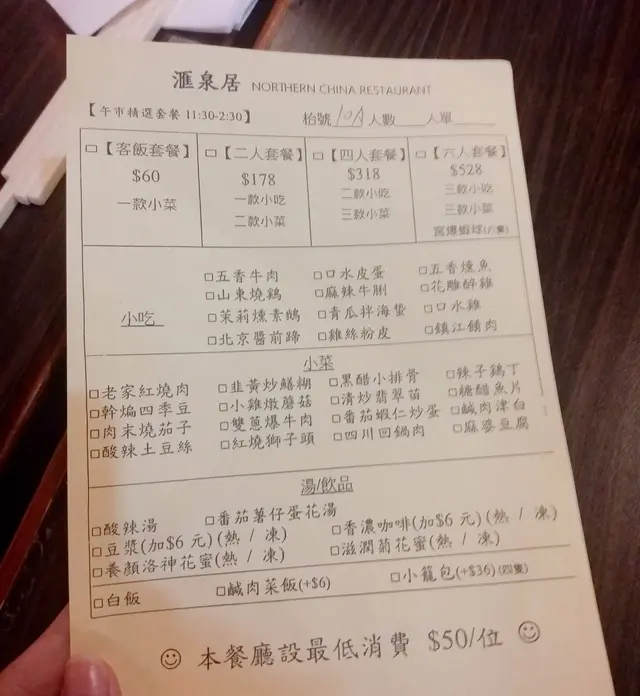 滙泉居 NORTHERN CHINA RESTAURANT
【午市精選套餐 11:30-2:30】 枱號 10A 人數 人單
□【客飯套餐】 □【二人套餐】 □【四人套餐】 □【六人套餐】
$60 $178 $318 $528
一款小菜 一款小吃 二款小吃 三款小吃
二款小菜 三款小菜 三款小菜
宮爆蝦球(六隻)
小吃
□五香牛肉 □口水皮蛋 □五香燻魚
□山東燒鷄 □麻辣牛腒 □花雕醉雞
□茉莉燻素鵝 □青瓜拌海蜇 □口水雞
□北京醬前蹄 □雞絲粉皮 □鎮江餚肉
小菜
□老家紅燒肉 □韭黃炒鱔糊 □黑醋小排骨 □辣子鷄丁
□幹煸四季豆 □小雞燉蘑菇 □清炒翡翠苗 □糖醋魚片
□肉末燒茄子 □雙蔥爆牛肉 □番茄蝦仁炒蛋 □鹹肉津白
□酸辣土豆絲 □紅燒獅子頭 □四川回鍋肉 □麻婆豆腐
湯/飲品
□酸辣湯 □番茄薯仔蛋花湯
□豆漿(加$6 元)(熱 / 凍) □香濃咖啡(加$6 元)(熱 / 凍)
□養顏洛神花蜜(熱 / 凍) □滋潤菊花蜜(熱 / 凍)
□白飯 □鹹肉菜飯(+$6) □小籠包(+$36)(四隻)
☺ 本餐廳設最低消費 $50/位 ☺